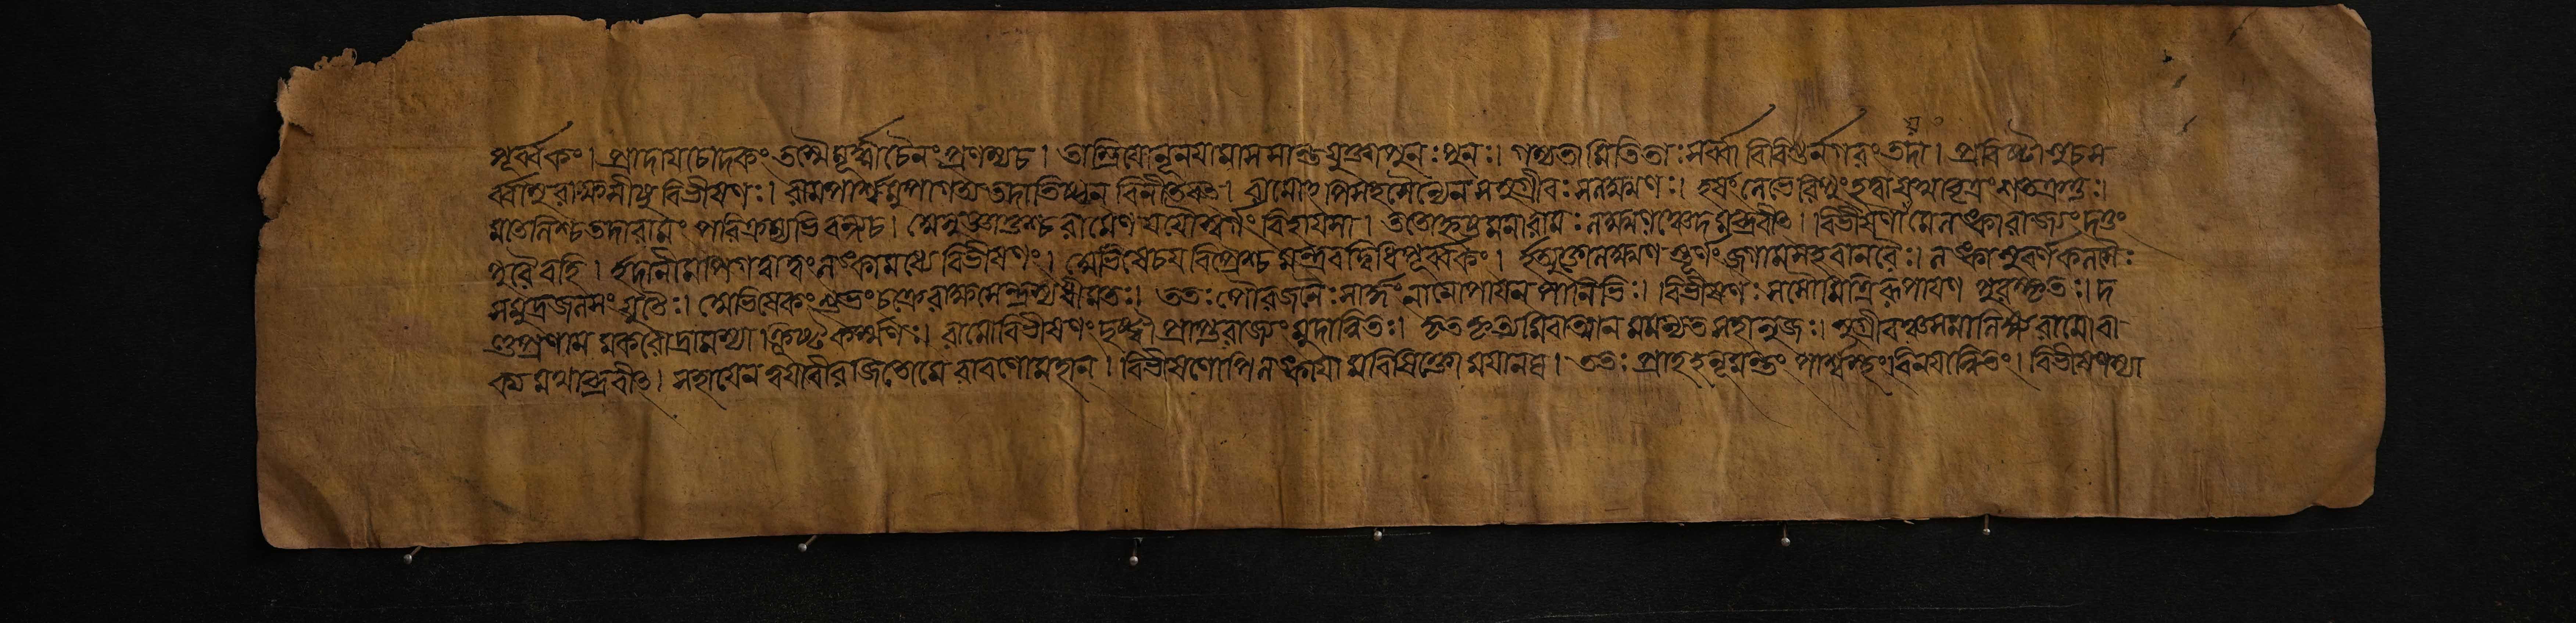 পূর্ব্বকং। প্রাদায চোদকং তস্মৈ মূর্দ্ধ্না চৈনং প্রণম্য চ। তাঃ স্ত্রিযোনুনযামাস সান্ত্বযুক্ত্বা পুনঃ পুনঃ। গম্যতামিতি তাঃ সর্ব্বা বিবিশুর্নগরং তদা। প্রবিষ্টাসু চ স
র্ব্বাসু রাক্ষসীষু বিভীষণঃ। রামপার্শ্বমুপাগত্য তদাতিষ্ঠদ্বিনীতবৎ। রামোপি সহ সৈন্যেন সসুগ্রীবঃ সলক্ষ্মণঃ। হর্ষং লেভে রিপুং হত্বা যথা বৃত্রং শতক্রতুঃ।
মাতলিশ্চ তদা রামং পরিক্রম্যাভিবন্দ্য চ। অনুজ্ঞাতশ্চ রামেণ যযৌ স্বর্গং বিহাযসা। ততো হৃষ্টমনা রামঃ লক্ষ্মণঞ্চেদমব্রবীৎ। বিভীষণায মে লঙ্কারাজ্যং দত্তং
পুরৈব হি। ইদানীমপি গত্বা ত্বং লঙ্কামধ্যে বিভীষণং। অভিষেচয বিপ্রৈশ্চ মন্ত্রবদ্বিধিপূর্ব্বকং। ইত্যুক্তো লক্ষ্মণস্তূর্ণং জগাম সহ বানরৈঃ। লঙ্কাং সুবর্ণকলসৈঃ
সমুদ্রজলসংযুতৈঃ। অভিষেকং শুভং চক্রে রাক্ষসেন্দ্রস্য ধীমতঃ। ততঃ পৌরজনৈঃ সার্দ্ধং নানোপাযনপাণিভিঃ। বিভীষণঃ সসৌমিত্রিরুপাযনপুরস্কৃতঃ। দ
ণ্ডপ্রণামমকরোদ্রামস্যাক্লিষ্টকর্ম্মণঃ। রামো বিভীষণং দৃষ্ট্বা প্রাপ্তরাজ্যং মুদান্বিতঃ। কৃতকৃত্যমিবাত্মানমমন্যত সহানুজঃ। সুগ্রীবঞ্চ সমালিঙ্গ্য রামো বা
ক্যমথাব্রবীৎ। সহাযেন ত্বযা বীর জিতো মে রাবণো মহান। বিভীষণোপি লঙ্কাযামভিষিক্তো মযানঘ। ততঃ প্রাহ হনূমন্তং পার্শ্বস্থং বিনযান্বিতং। বিভীষণস্যা